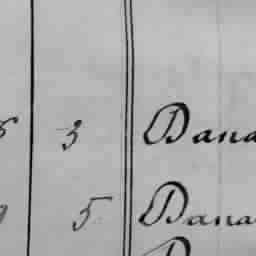 3 Dana
5 Dana